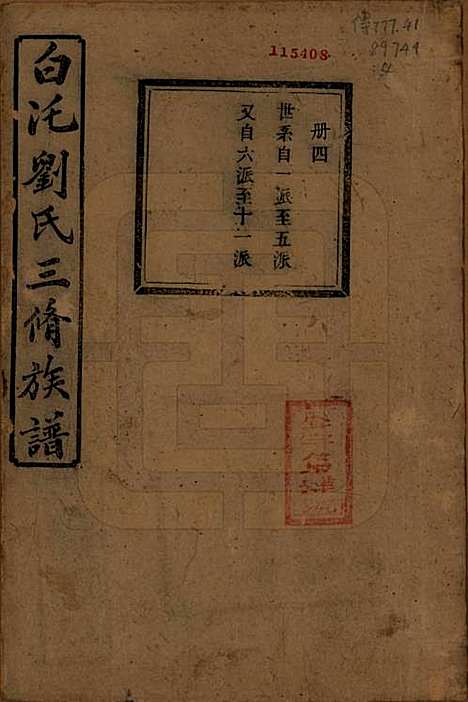 白汑劉氏三脩族譜
册四
世系自一派至五派
又自六派至十一派
115408
傳777.41
89744